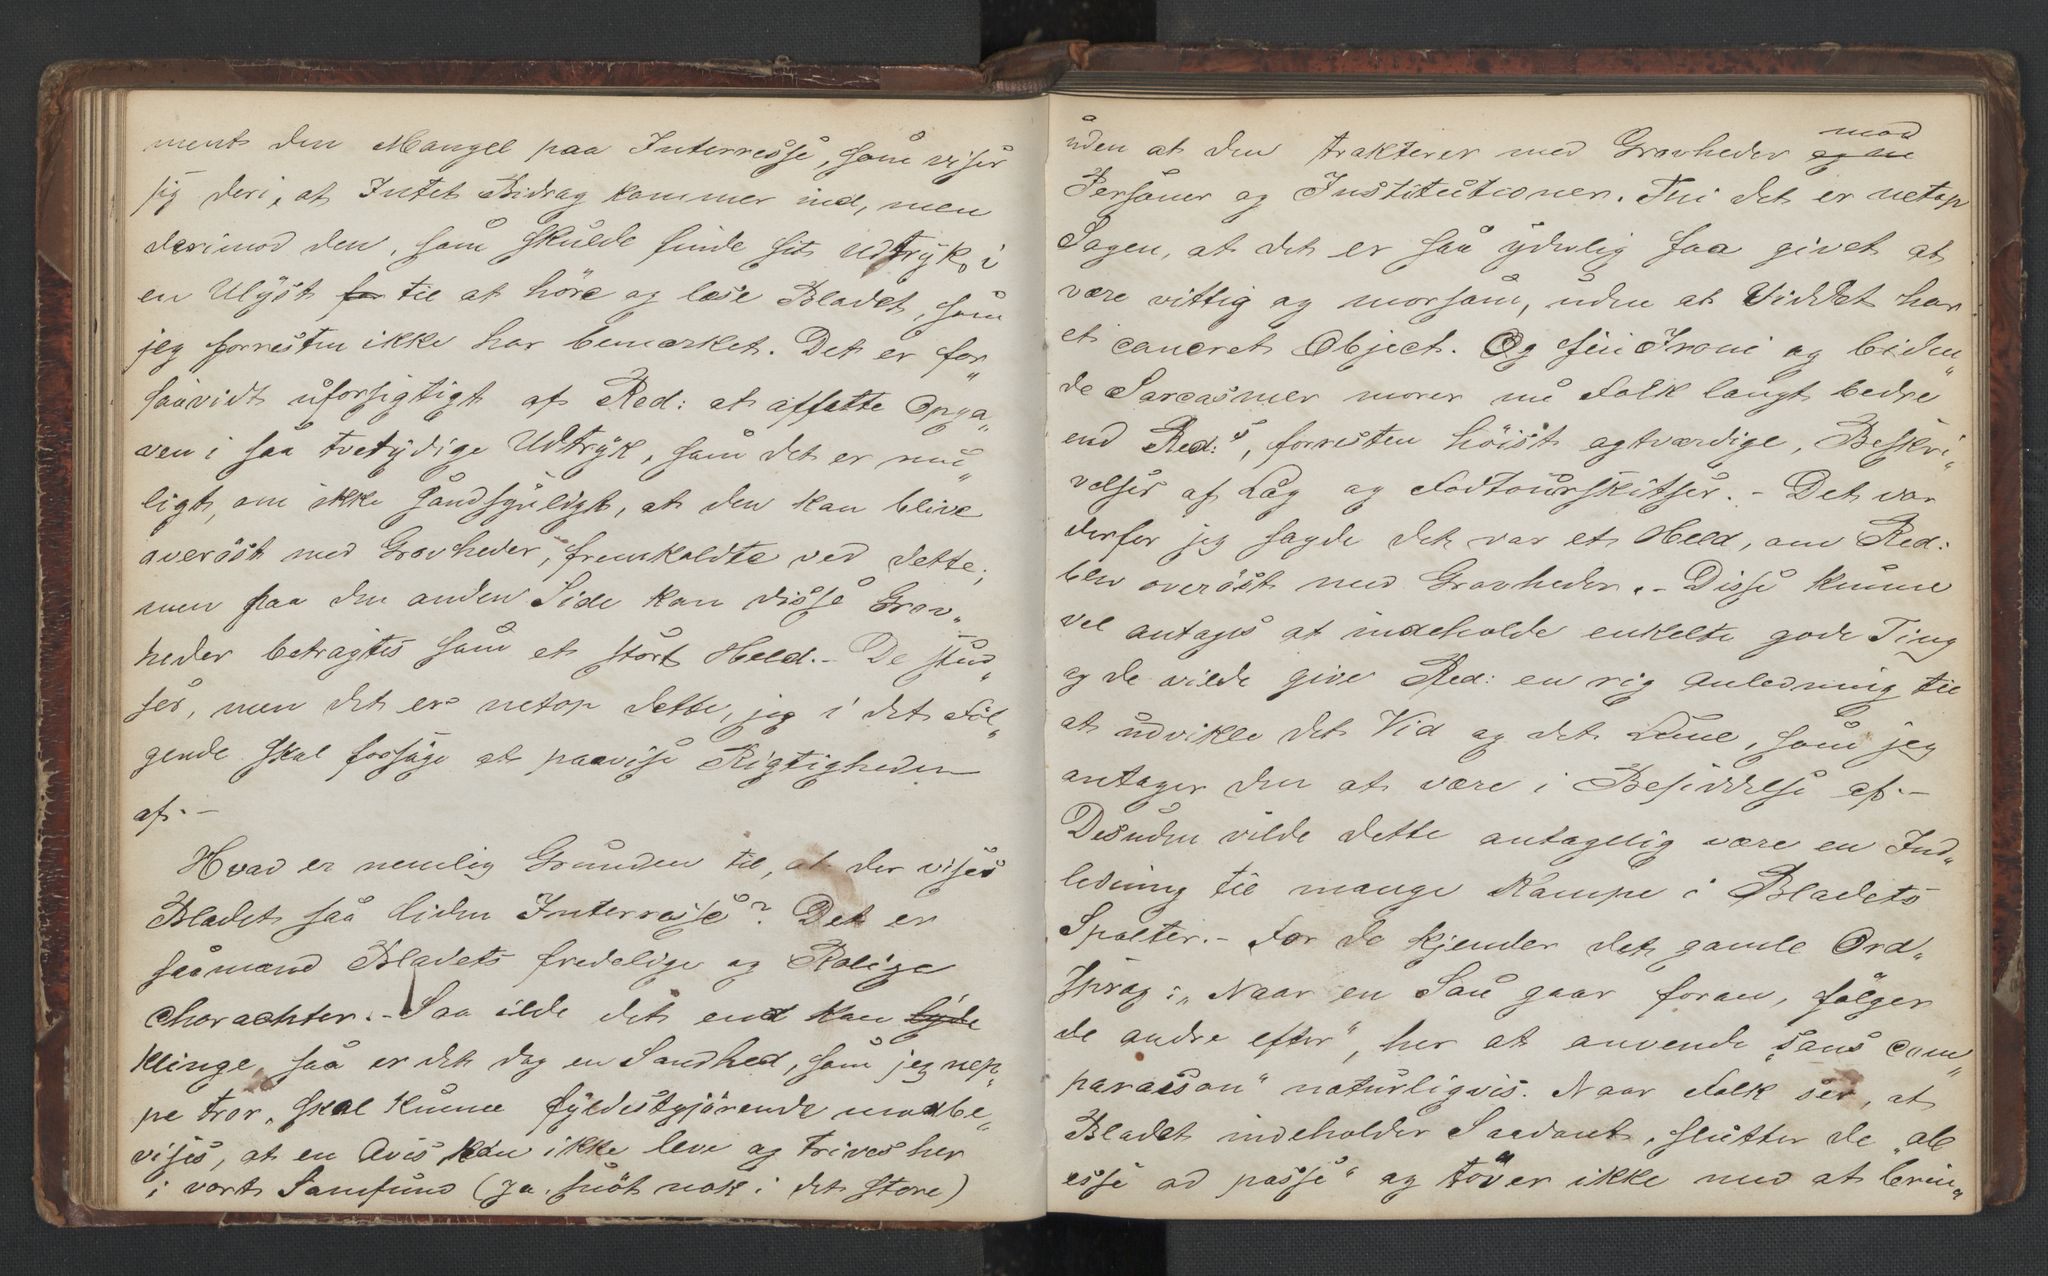 ment den Mangel paa Interresse, som viser
sig deri, at Intet Bidrag kommer ind, men
derimod den, som skulde finde sit Udtryk i
en Ulyst for til at höre og læse Bladet, som
jeg forresten ikke har bemærket. Det er for„
saavidt uforsigtigt af Red: at affatte Opga„
ven i saa tvetydige Udtryk, som det er mu„
ligt, om ikke sandsynligt, at den kan blive
overöst med Grovheder, fremkaldte ved dette;
men paa den anden Side kan disse Grov„
heder betragtes som et stort Held. – De stud„
ser, men det er netop dette, jeg i det Föl„
gende skal forsöge at paavise Rigtigheden
af. –
Hvad er nemlig Grunden til, at der vises
Bladet saa liden Interresse? Det er
saamænd Bladets fredelige og Rolige
Charachter. – Saa ilde det end kan lyde
klinge, saa er det dog en Sandhed, som jeg nep„
pe tror, skal kunne fyldestgjörende modbe„
vises, at en Avis kan ikke leve og trives her
i vort Samfund (ja, snöt nok i det store)
uden at den trakterer med Grovheder og en mod
Personer og Institutioner. Thi det er netop
Sagen, at det er saa yderlig faa givet at
være vittig og morsom, uden at Viddet har
et concret Object. Og fin Ironi og biden„
de Sarcasmer morer nu Folk langt bedre
end Red:s, forresten höist agtværdige, Beskri„
velser af Lög og Fodtourskitser. – Det var
derfor jeg sagde det var et Held, om Red:
blev overöst med Grovheder. – Disse kunne
vel antages at indeholde enkelte gode Ting
og de vilde give Red: en rig Anledning til
at udvikle det Vid og det Lune, som jeg
antager den at være i Besiddelse af. –
Desuden vilde dette antagelig være en Ind„
ledning til mange Kampe i Bladets
Spalter. – For de kjender det gamle Ord„
sprog: „Naar en Sau gaar foran, fölger
de andre efter“, her at anvende „sans com„
paraison“ naturligvis. Naar Folk ser, at
Bladet indeholder Saadant, slutter de „ab
esse ad posse“ og töver ikke med at brin„